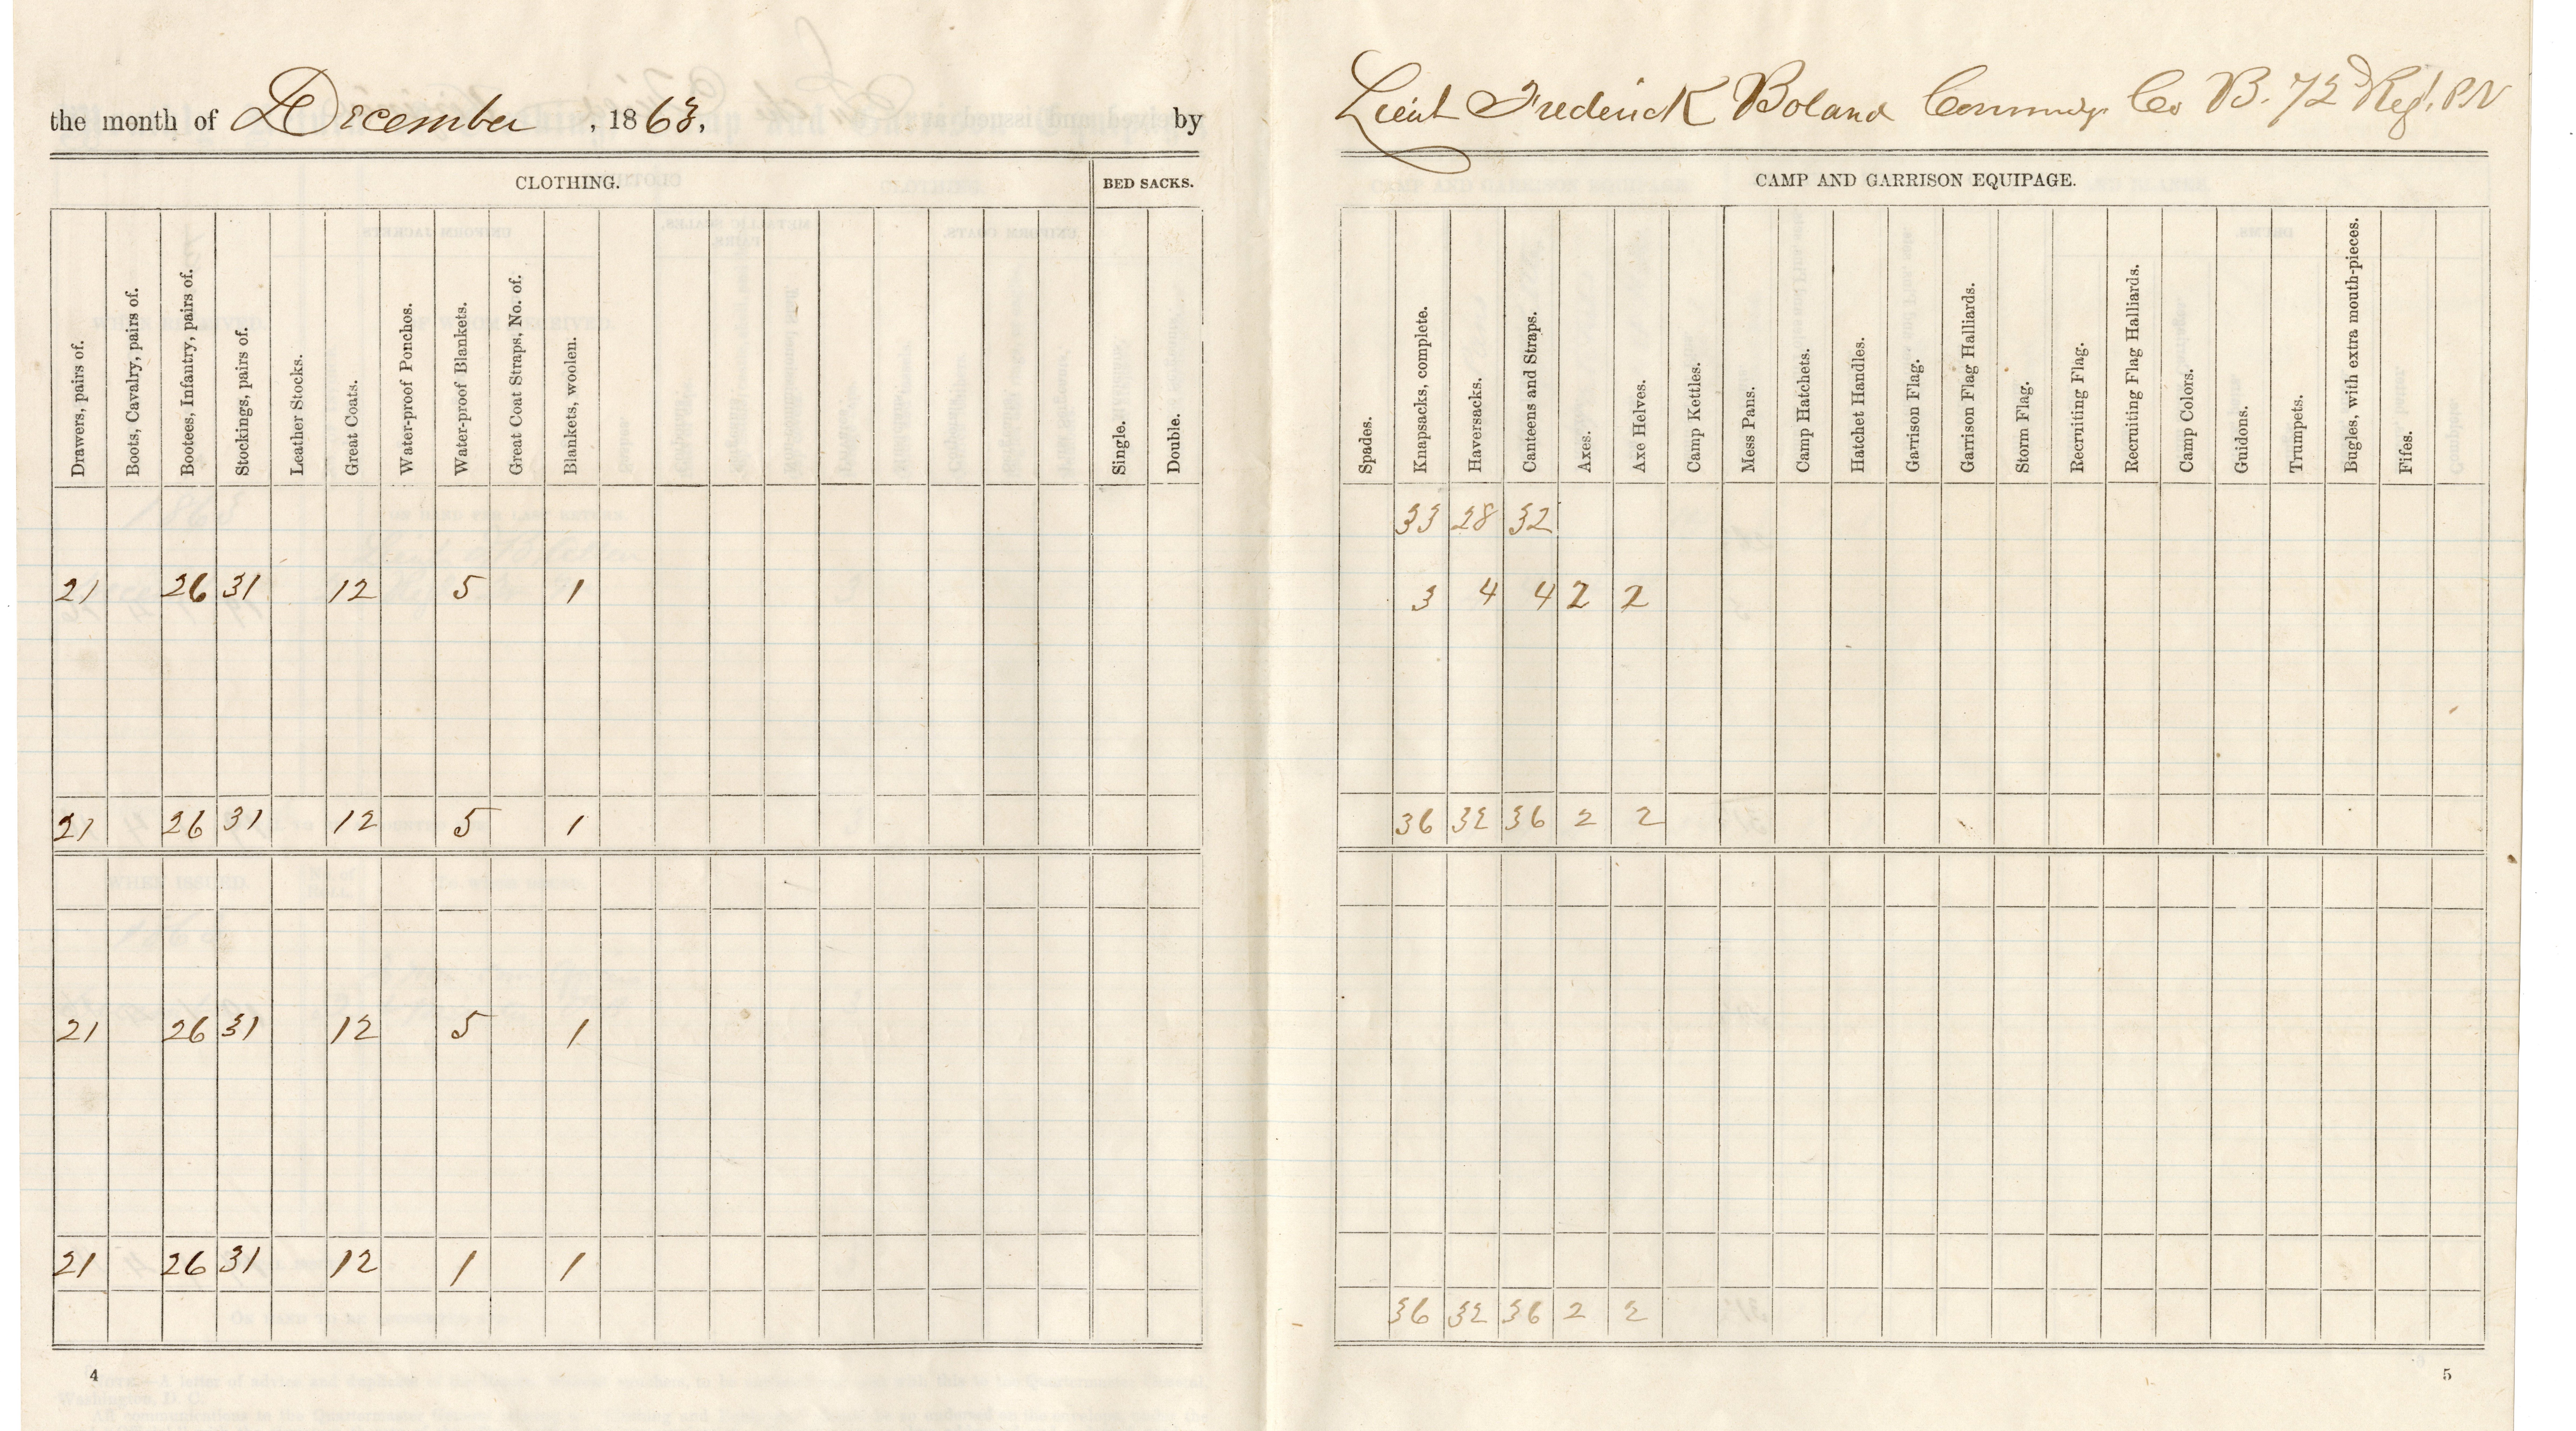 the month of December , 1863. by Lieut Frederick Boland Commdg Co B. 72d Regt. PV
CLOTHING. BED SACKS. CAMP AND GARRISON EQUIPAGE.
Drawers, pairs of.
Boots, Cavalry, pairs of.
Bootees, Infantry, pairs of.
Stockings, pairs of.
Leather Stocks.
Great Coats.
Water-proof Ponchos.
Water-proof Blankets.
Great Coat Straps, No. of.
Blankets, woolen.
Single.
Double.
Spades.
Knapsacks, complete.
Haversacks.
Canteens and Straps.
Axes.
Axe Helves.
Camp Kettles.
Mess Pans.
Camp Hatchets.
Hatchet Handles.
Garrison Flag.
Garrison Flag Halliards.
Storm Flag.
Recruiting Flag.
Recruiting Flag Halliards.
Camp Colors.
Guidons.
Trumpets.
Bugles, with extra mouth-pieces.
Fifes.
33 28 32
21 26 31 12 5 1 3 4 4 2 2
21 26 31 12 5 1 36 32 36 2 2
21 26 31 12 5 1
21 26 31 12 1 1
36 32 36 2 2
4 5